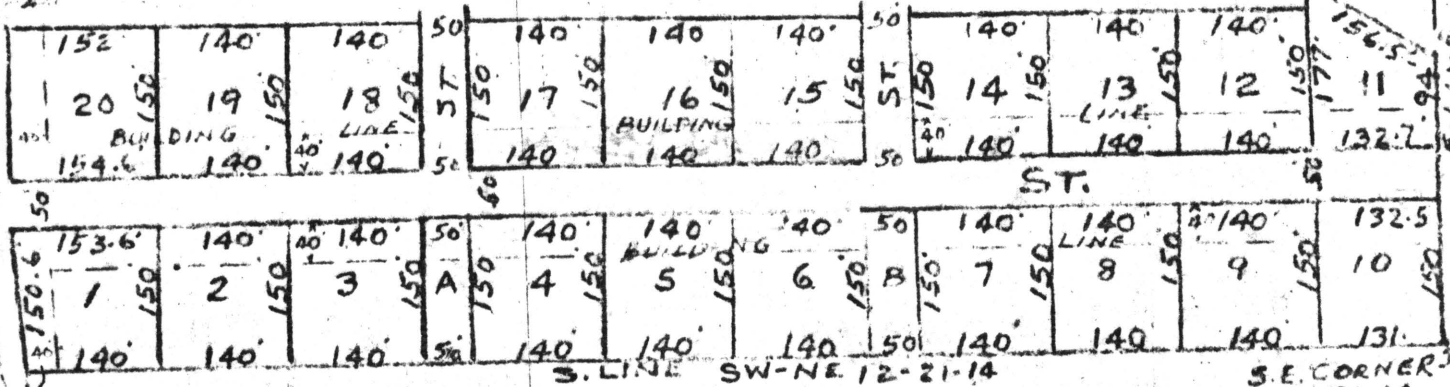 152 140' 140' 50 140' 140' 140' 50' 140' 140' 140' 156.5'
20 150' 19 150' 18 150' ST 150' 17 150' 16 150' 15 150' ST. 150' 14 150' 13 150' 12 150' 177' 11 94'
40' BUILDING LINE BUILDING LINE
154.6 140' 40' 140' 50 140 140 140 50 40' 140' 140' 140' 132.7
50 50 ST. 50
153.6' 140' 40' 140' 50' 140' 140' 50 140' 140' 140' 132.5
BUILDING LINE
150.6 1 150' 2 150' 3 150' A 150' 4 150' 5 150' 6 150' B 150' 7 150' 8 150' 9 150' 10 150
40' 140' 140' 140' 50' 140' 140' 140 50' 140' 140' 140' 131.
S. LINE SW-NE 12-21-14 S.E. CORNER-